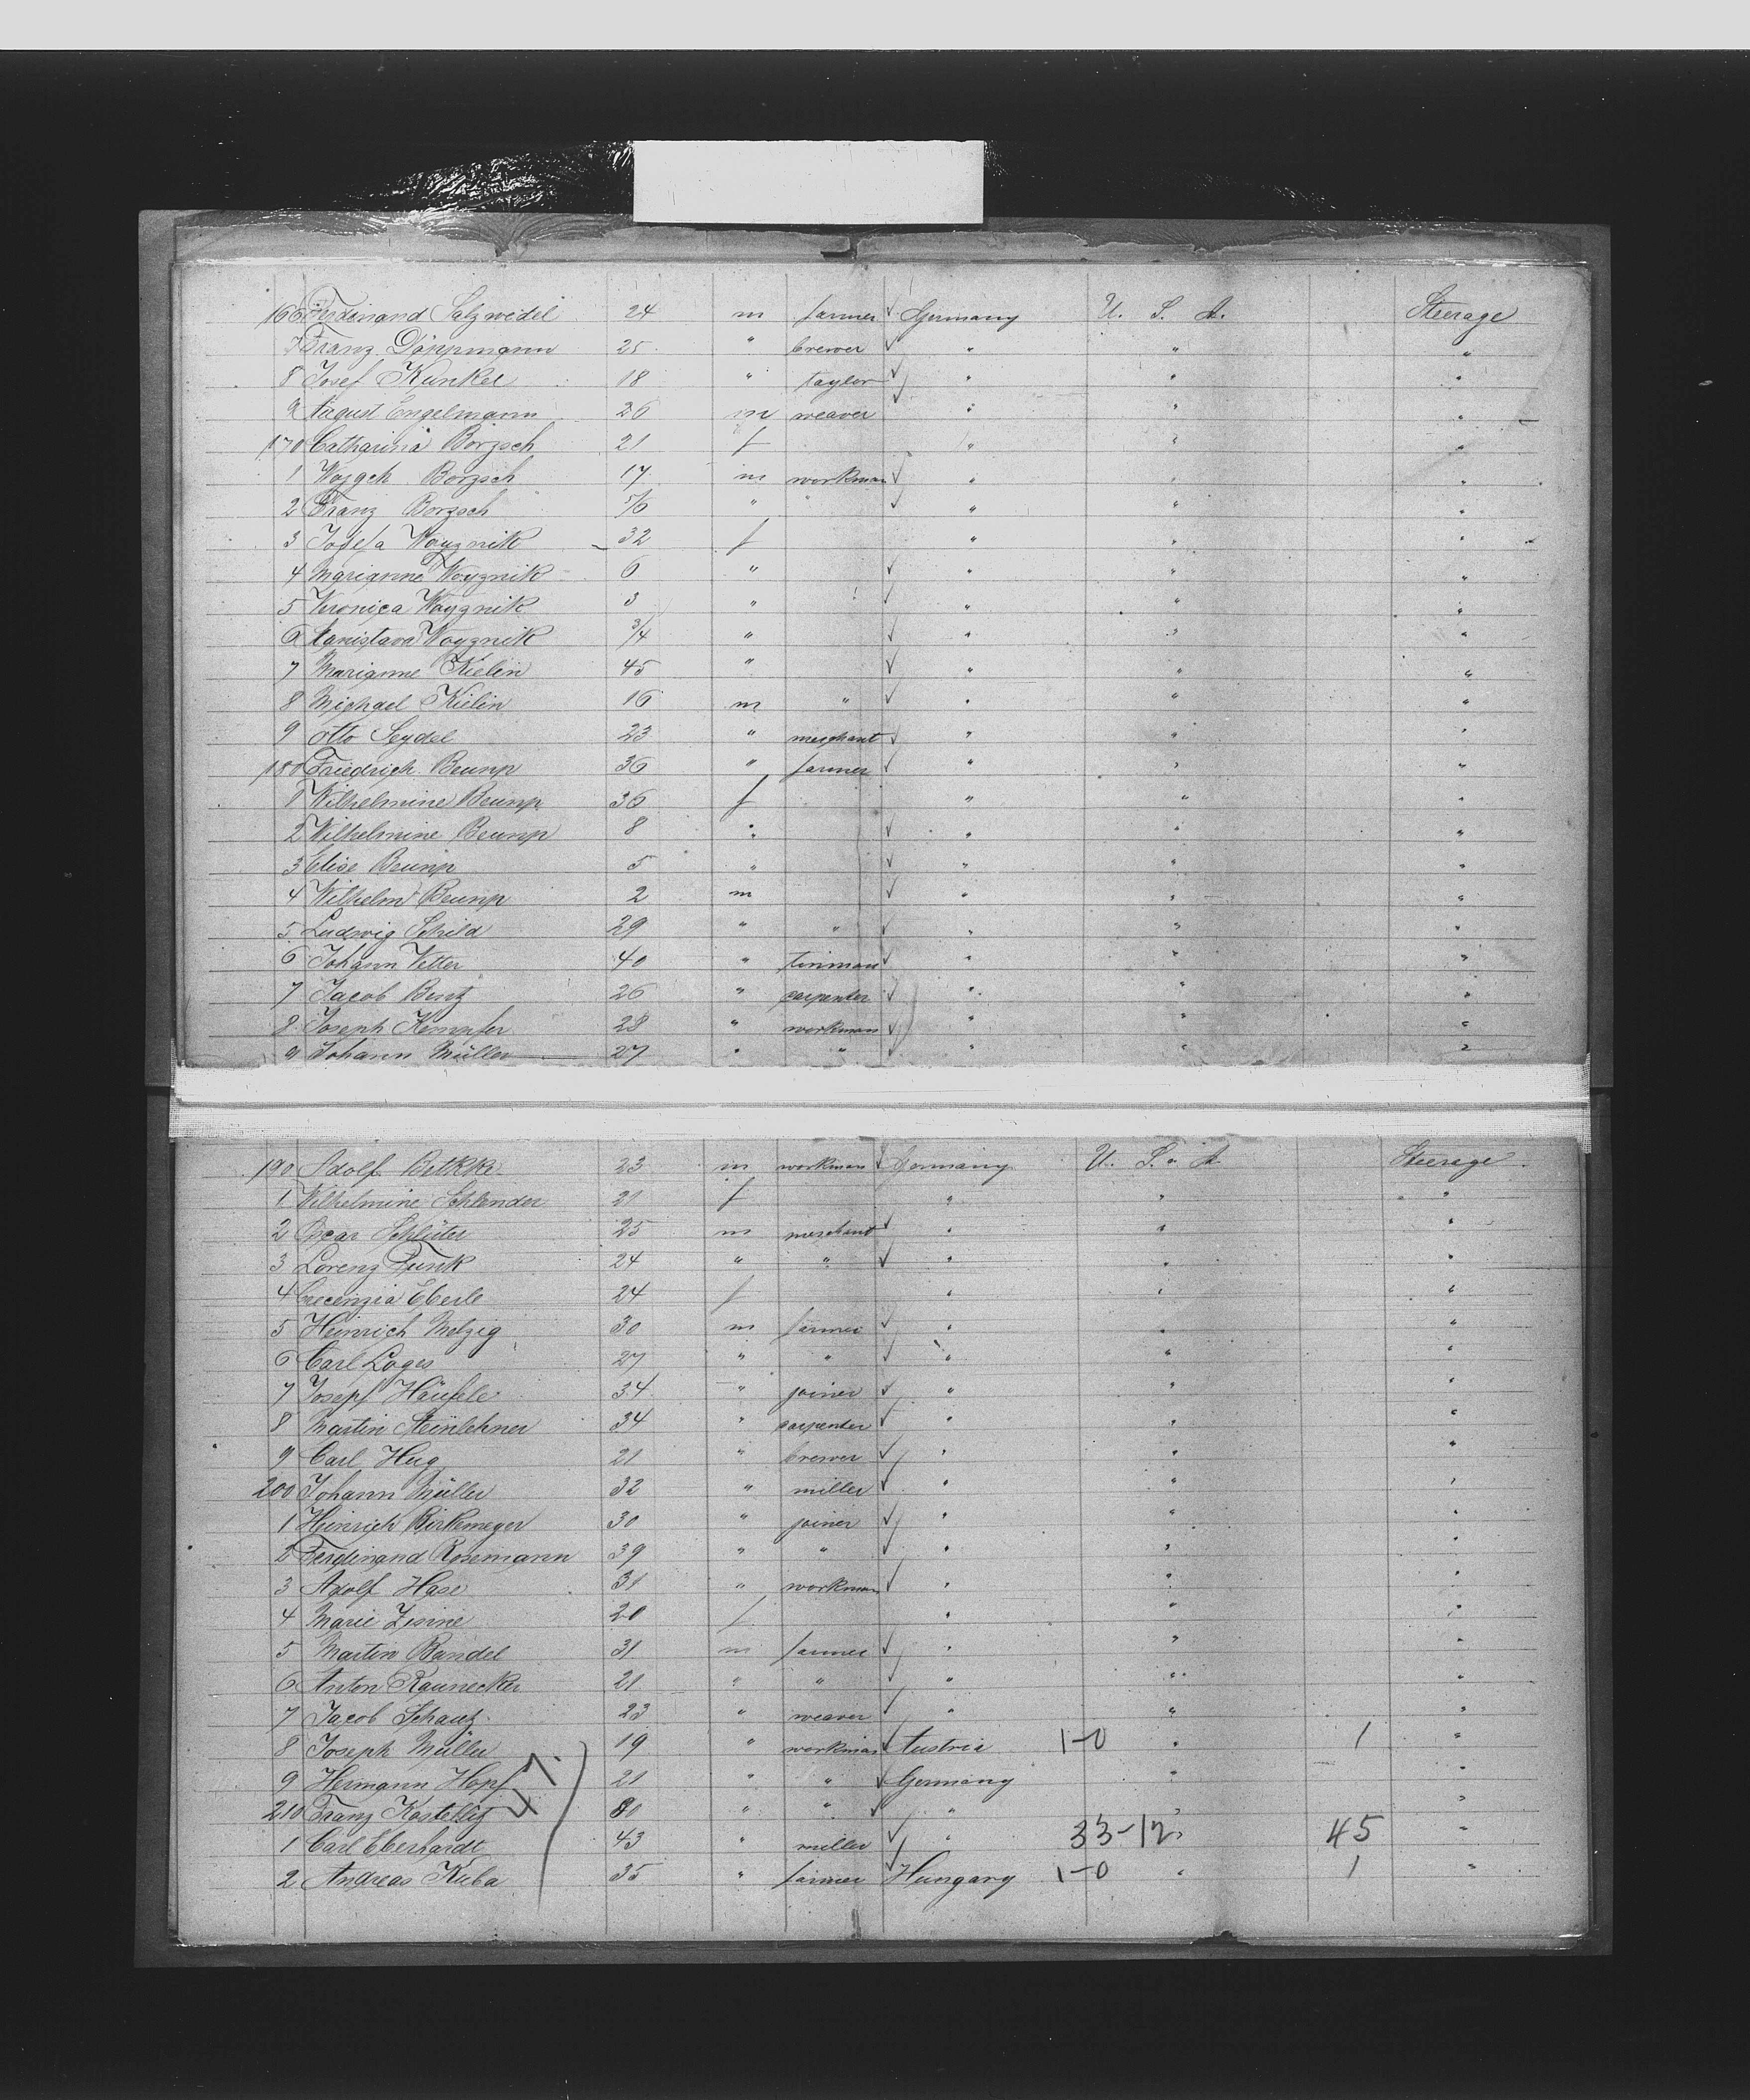 166 Ferdinand Salzwedel 24 m farmer Germany U. S. A. Steerage
7 Franz Döppmann 25 " brewer " " "
8 Josef Kunkel 18 " taylor " " "
9 August Engelmann 26 m weaver " " "
170 Catharina Borzsch 21 f " " "
1 Borzsch 17 m workman " " "
2 Franz Borzsch 5/6 " " " " "
3 Josefa Woyznik 32 f " " "
4 Marianne Woyznik 6 " " " "
5 Veronica Woyznik 3 " " " "
6 Stanislava Woyznik 3/4 " " " "
7 Marianne Kielin 45 " " " "
8 Michael Kielin 16 m " " " "
9 Otto Seydel 23 " merchant " " "
180 Friedrich Beump 36 " farmer " " "
1 Wilhelmine Beump 36 f " " "
2 Wilhelmine Beump 8 " " " "
3 Elise Beump 5 " " " "
4 Wilhelm Beump 2 m " " "
5 Ludwig Schild 29 " " " " "
6 Johann Vetter 40 " tinman " " "
7 Jacob Bentz 26 " carpenter " " "
8 Joseph Kempfer 28 " workman " " "
9 Johann Müller 27 " " " " "
190 Adolf Betkke 23 m workman Germany U. S. A. Steerage
1 Wilhelmine Schlender 21 f " " "
2 Oscar Schlüter 25 m merchant " " "
3 Lorenz Funk 24 " " " " "
4 Crecenzia Eberle 24 f " " "
5 Heinrich Melzig 30 m farmer " " "
6 Carl Loges 27 " " " " "
7 Josepf Häufele 34 " joiner " " "
8 Martin Steinlehner 34 " carpenter " " "
9 Carl Hug 21 " brewer " " "
200 Johann Müller 32 " miller " " "
1 Heinrich Birkemeyer 30 " joiner " " "
2 Ferdinand Rosemann 39 " " " " "
3 Adolf Hase 31 " workman " " "
4 Marie 20 f " " "
5 Martin Bandel 31 m farmer " " "
6 Anton Raunecker 21 " " " " "
7 Jacob Schautz 23 " weaver " " "
8 Joseph Müller 19 " workman Austria 1-0 " 1 "
9 Hermann Hopf 21 " " Germany " "
210 Franz Kosteletz 30 " " " " "
1 Carl Eberhardt 43 " miller " 33-12 " 45 "
2 Andreas Kuba 35 " farmer Hungary 1-0 " 1 "